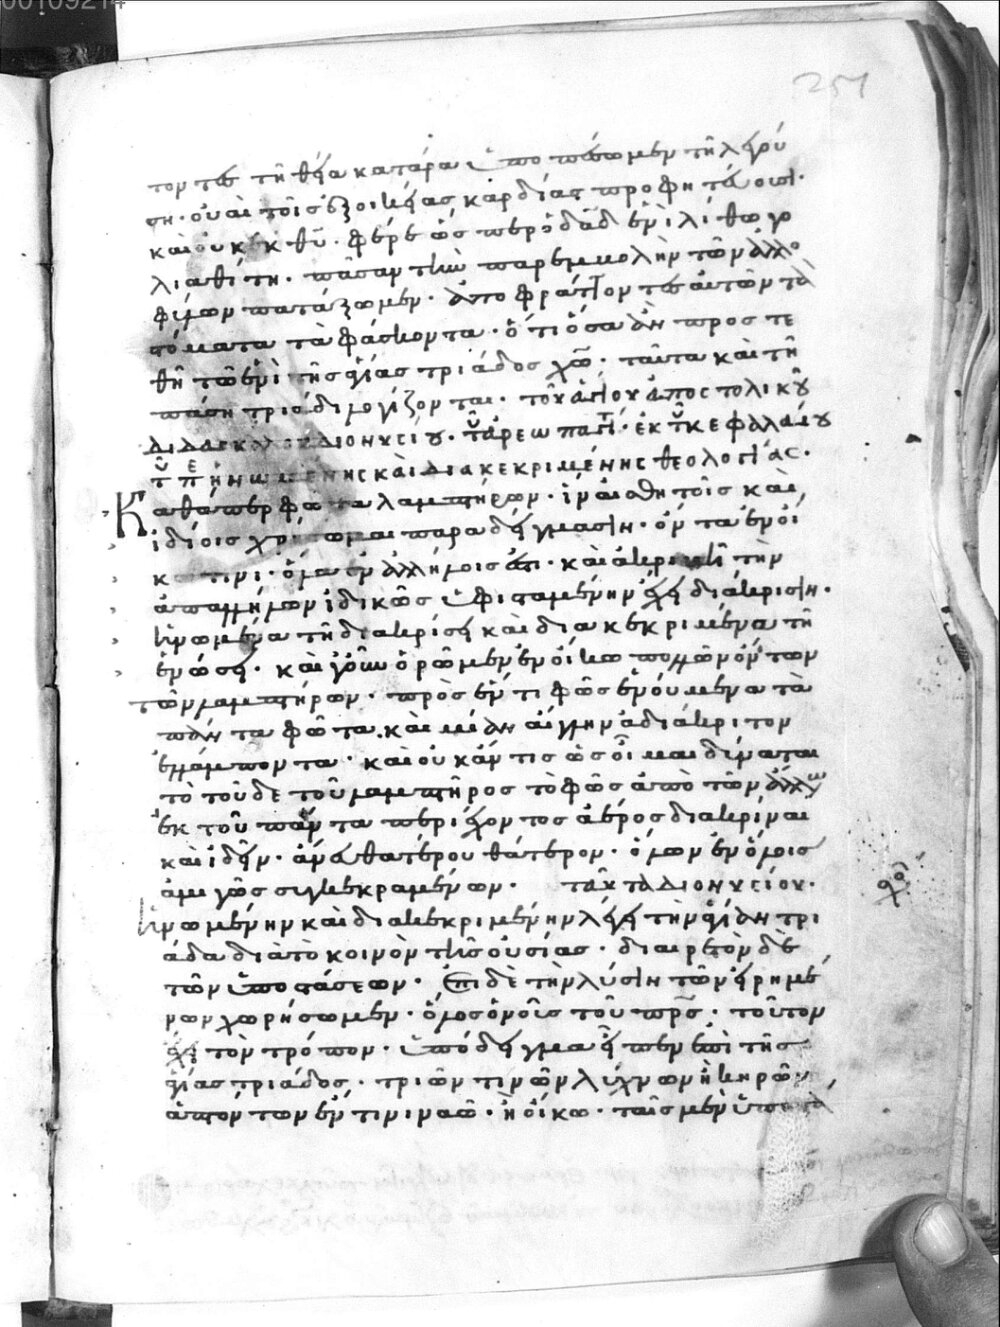 00109214
251
τοντες τῆ θεία κατάρα ὑποπέσωμεν τῆ λεγού
ση· οὐαὶ τοῖς ἐξ οἰκείας καρδίας προφητεύουσι·
καὶ οὐκ ἐκ θῦ· φέρε ὡς περ ὁ δᾶδ ἐν ἑνὶ λίθω γο
λιαθίτη· πᾶσαν τὴν παρεμβολὴν τῶν ἀλλο
φύλων πατάξωμεν· ἀποφράττοντες αὐτῶν τὰ
στόματα τὰ φάσκοντα· ὅτι ὅσα δὴ προστε
θῆ τῶ ἑνὶ τῆς ἁγίας τριάδος χῶ· ταῦτα καὶ τῆ
πάση τριάδι λογίζονται· τοῦ ἁγίου ἀποστολικοῦ
διδασκάλου διονυσίου· τοῦ ἀρεωπαγίτ· ἐκ τοῦ κεφαλαίου
τοῦ περὶ ἡνωμένης καὶ διακεκριμένης θεολογίας·
Καθάπερ φῶτα λαμπτήρων· ἵν' αἰσθητοῖς καὶ
ἰδίοις χρήσωμαι παραδείγμασιν· ὄντα ἐν οἴ
κω τινὶ· ὅλα ἐν ἀλλήλοις ἐστι· καὶ ἀκριβῆ τὴν
ἀπ' ἀλλήλων ἰδικῶς ὑφισταμένην ἔχει διάκρισιν·
ἡνωμένα τῆ διακρίσει καὶ διακεκριμένα τῆ
ἑνώσει· καὶ γοῦν ὁρῶμεν ἐν οἴκω πολλῶν ὄντων
τῶν λαμπτήρων· πρὸς ἕν τι φῶς ἑνούμενα τὰ
πάντα φῶτα· καὶ μίαν αἴγλην ἀδιάκριτον
ἐλλάμποντα· καὶ οὐκ ἄν τις ὡς οἶμαι δύναται
τὸ τοῦδε τοῦ λαμπτῆρος τὸ φῶς ἀπὸ τῶν ἄλλων
ἐκ τοῦ πάντα περιέχοντος ἀέρος διακρῖναι
καὶ ἰδεῖν· ἄνευ θατέρου θάτερον· ὅλων ἐν ὅλοις
ἀμιγῶς συγκεκραμένων· ταῦτα διονυσίου·
Ἡνωμένην καὶ διακεκριμένην λέγει τὴν ἁγίαν τρι
άδα διὰ τὸ κοινὸν τῆς οὐσίας· διαιρετὸν δὲ
τῶν ὑποστάσεων· Ἐπὶ δὲ τὴν λύσιν τῶν εἰρημέ
νων χωρήσωμεν· ὁμοούσιος τοῦ πρς· τοῦτον
ἔχει τὸν τρόπον· ὑπόδειγμα εἴπερ ἐπὶ τῆς
ἁγίας τριάδος· τριῶν τινῶν λύχνων ἢ κηρῶν
ἁπτόντων ἔν τινι ναῶ· ἢ οἴκω· ταῖς μὲν ὑποστά